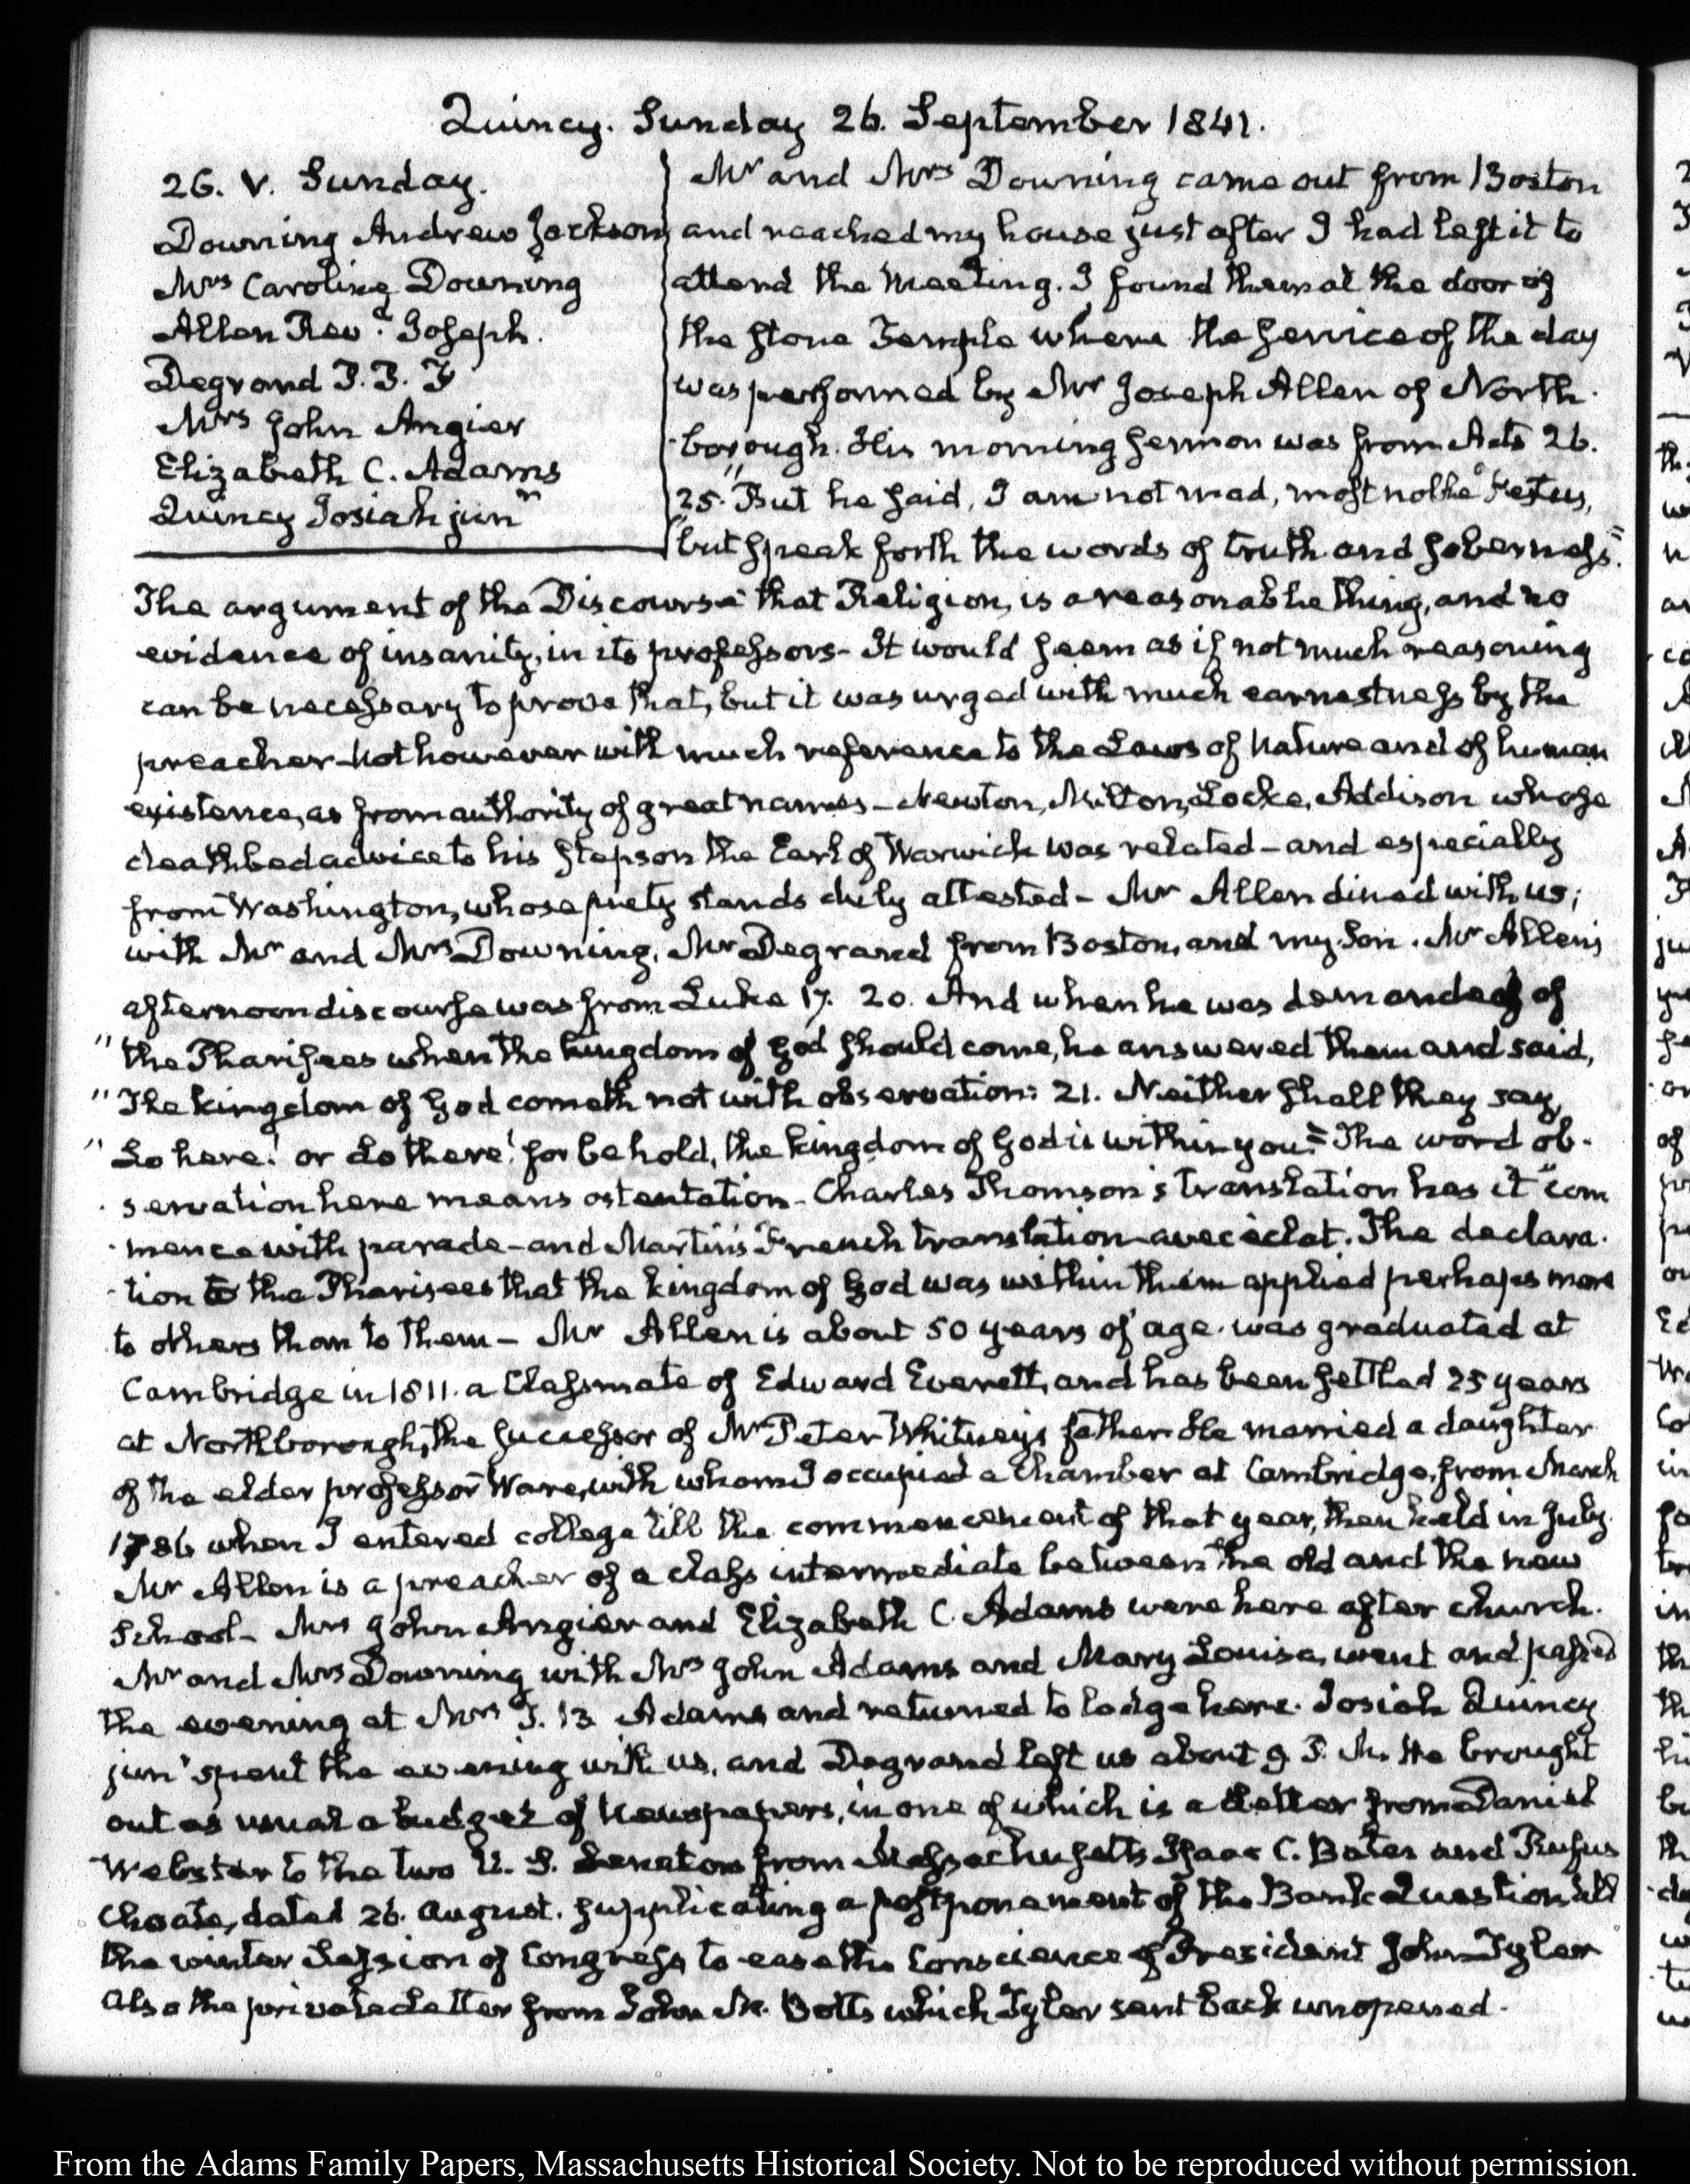 Quincy. Sunday 26. September 1841.
26. V. Sunday.
Downing Andrew Jackson
Mrs Caroline Downing
Allen Revd. Joseph.
Degrand P. P. F
Mrs John Angier
Elizabeth C. Adams
Quincy Josiah junr
Mr and Mrs Downing came out from Boston
and reached my house just after I had left it to
attend the Meeting. I found them at the door of
the stone Temple where the service of the day
was performed by Mr Joseph Allen of North-
borough. His morning sermon was from Acts 26.
25. "But he said, I am not mad, most noble Festus,
"but speak forth the words of truth and soberness."
The argument of the Discourse that Religion, is a reasonable thing, and no
evidence of insanity, in its professors- It would seem as if not much reasoning
can be necessary to prove that, but it was urged with much earnestness by the
preacher- not however with much reference to the Laws of Nature and of human
existence, as from authority of great names- Newton, Milton, Locke, Addison whose
deathbed advice to his stepson the Earl of Warwick was related- and especially
from Washington, whose piety stands duly attested- Mr Allen dined with us;
with Mr and Mrs Downing, Mr Degrand from Boston, and my Son. Mr Allen's
afternoon discourse was from Luke 17. 20. And when he was demanded of
"the Pharisees when the kingdom of God should come, he answered them and said,
"The kingdom of God cometh not with observation: 21. Neither shall they say,
"Lo here! or Lo there! for behold, the kingdom of God is within you." The word ob-
servation here means ostentation- Charles Thomson's translation has it "com
mence with parade- and Martin's French translation avec éclat. The declara-
tion to the Pharisees that the kingdom of God was within them applied perhaps more
to others than to them- Mr Allen is about 50 years of age. was graduated at
Cambridge in 1811. a Classmate of Edward Everett, and has been settled 25 years
at Northborough, the successor of Mr Peter Whitney's father. He married a daughter
of the elder professor Ware, with whom I occupied a Chamber at Cambridge, from March
1786 when I entered college till the commencement of that year, then held in July.
Mr Allen is a preacher of a class intermediate between the old and the new
School- Mrs John Angier and Elizabeth C. Adams were here after church.
Mr and Mrs Downing with Mrs John Adams and Mary Louisa, went and passed
the evening at Mrs T. B. Adams and returned to lodge here. Josiah Quincy
junr spent the evening with us, and Degrand left us about 9 P. M. He brought
out as usual a budget of Newspapers, in one of which is a Letter from Daniel
Webster to the two U. S. Senators from Massachusetts Isaac C. Bates and Rufus
Choate, dated 26. August. supplicating a postponement of the Bank Question till
the winter Session of Congress to ease the Conscience of President John Tyler
Also the private Letter from John M. Botts which Tyler sent back unopened.
From the Adams Family Papers, Massachusetts Historical Society. Not to be reproduced without permission.